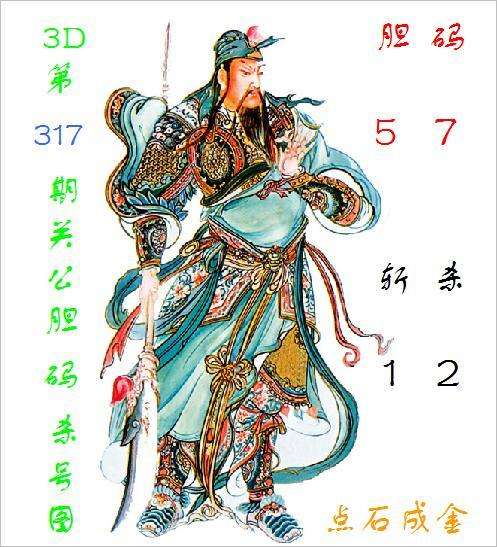 3D
第
317
期
关
公
胆
码
杀
号
图
胆 码
5 7
斩 杀
1 2
点石成金